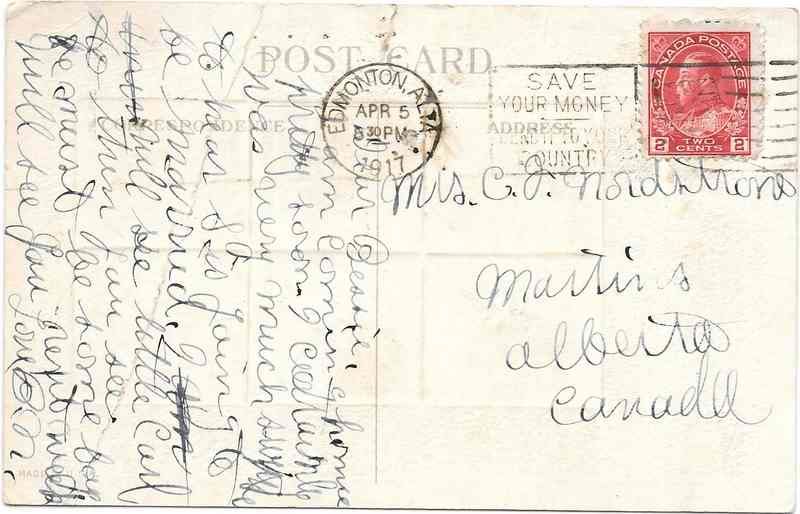 POST CARD
CORRESPONDENCE
ADDRESS
EDMONTON, ALTA
APR 5
5 30 PM
1917
SAVE
YOUR MONEY
LEND IT TO YOUR
COUNTRY
CANADA POSTAGE
2 2
TWO
CENTS
Mrs. C. J. Nordstrone
Martins
Alberta
Canada
Dear Bessie,
I am coming home
pretty soon, I certainly
was very much surprised
to hear St is going to
be married. I
will see little Carl
to then you see.
he must be some boy
will see you next week
Love
MADE IN